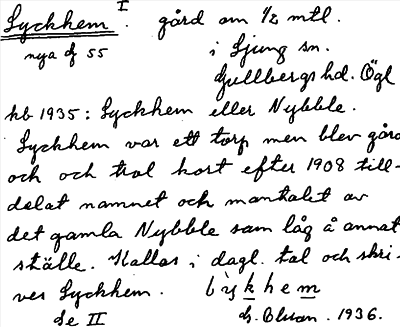 Lyckhem I. gård om 1/2 mtl.
nya J 55 i Ljung sn.
Gullbergs hd. Ögl
kb 1935: Lyckhem eller Nybble.
Lyckhem var ett torp men blev gård
och och trol kort efter 1908 till-
delat namnet och mantalet av
det gamla Nybble som låg å annat
ställe. Kallas i dagl. tal och skri-
ves Lyckhem. lykhem
Se II G. Olsson. 1936.